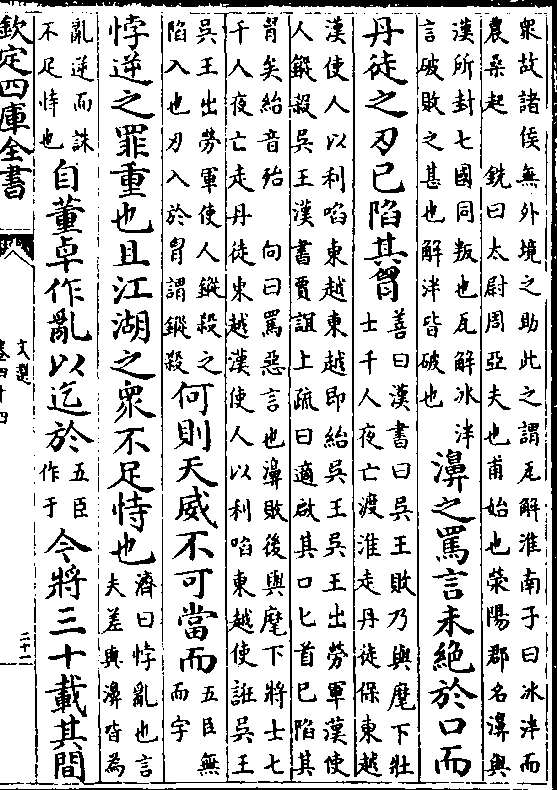 衆故諸侯無外境之助此之謂瓦解淮南子曰冰泮而
農桑起　銑曰太尉周亞夫也甫始也滎陽郡名濞與
漢所封七國同叛也瓦解冰泮
言破敗之甚也解泮皆破也
濞之罵言未絶於口而
丹徒之刃已陷其胷
善曰漢書曰吳王敗乃與麾下壯
士千人夜亡渡淮走丹徒保東越
漢使人以利啗東越東越即紿吳王吳王出勞軍漢使
人鏦殺吳王漢書賈誼上疏曰適啟其口匕首已陷其
胷矣紿音殆　向曰罵惡言也濞敗後與麾下將士七
千人夜亡走丹徒東越漢使人以利啗東越使誑吳王
吳王出勞軍使人鏦殺之
陷入也刃入於胷謂鏦殺
何則天威不可當而
五臣無
而字
悖逆之罪重也且江湖之衆不足恃也
濟曰悖亂也言
夫差與濞皆為
亂逆而誅
不足恃也
自董卓作亂以迄於
五臣
作于
今將三十載其間
欽定四庫全書
文選
卷四十四
三十一